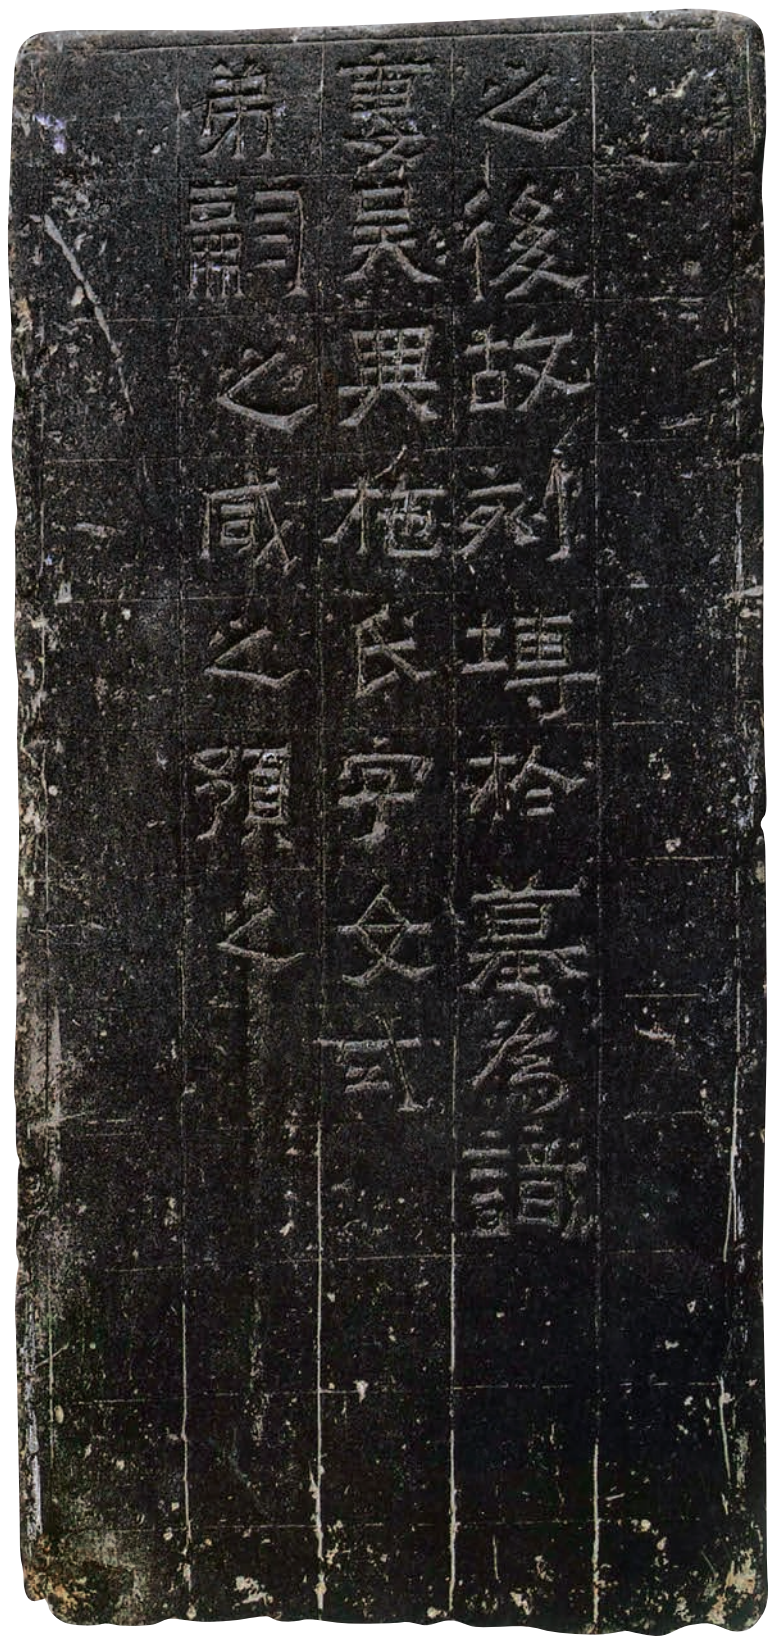 之後故刻塼於墓為識
妻吳興施氏字女式
弟嗣之咸之預之